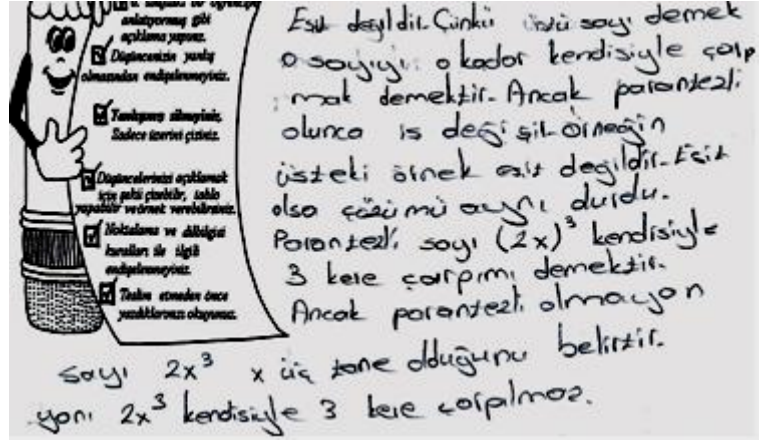 anlatıyormuş gibi
açıklama yapınız.
Düşüncenizin yanlış
olmasından endişelenmeyiniz.
Yanlışınızı silmeyiniz.
Sadece üzerini çiziniz.
Düşüncelerinizi açıklamak
için şekil çizebilir, tablo
yapabilir ve örnek verebilirsiniz.
Noktalama ve dilbilgisi
kuralları ile ilgili
endişelenmeyiniz.
Teslim etmeden önce
yazdıklarınızı okuyunuz.
Eşit değildir. Çünkü üslü sayı demek
o sayıyı o kadar kendisiyle çarp
mak demektir. Ancak parantezli
olunca iş değişir. Örneğin
üsteki örnek eşit değildir. Eşit
olsa çözümü aynı olurdu.
Parantezli sayı (2x)³ kendisiyle
3 kere çarpımı demektir.
Ancak parantezli olmayan
sayı 2x³ x üç tane olduğunu belirtir.
yani 2x³ kendisiyle 3 kere çarpılmaz.